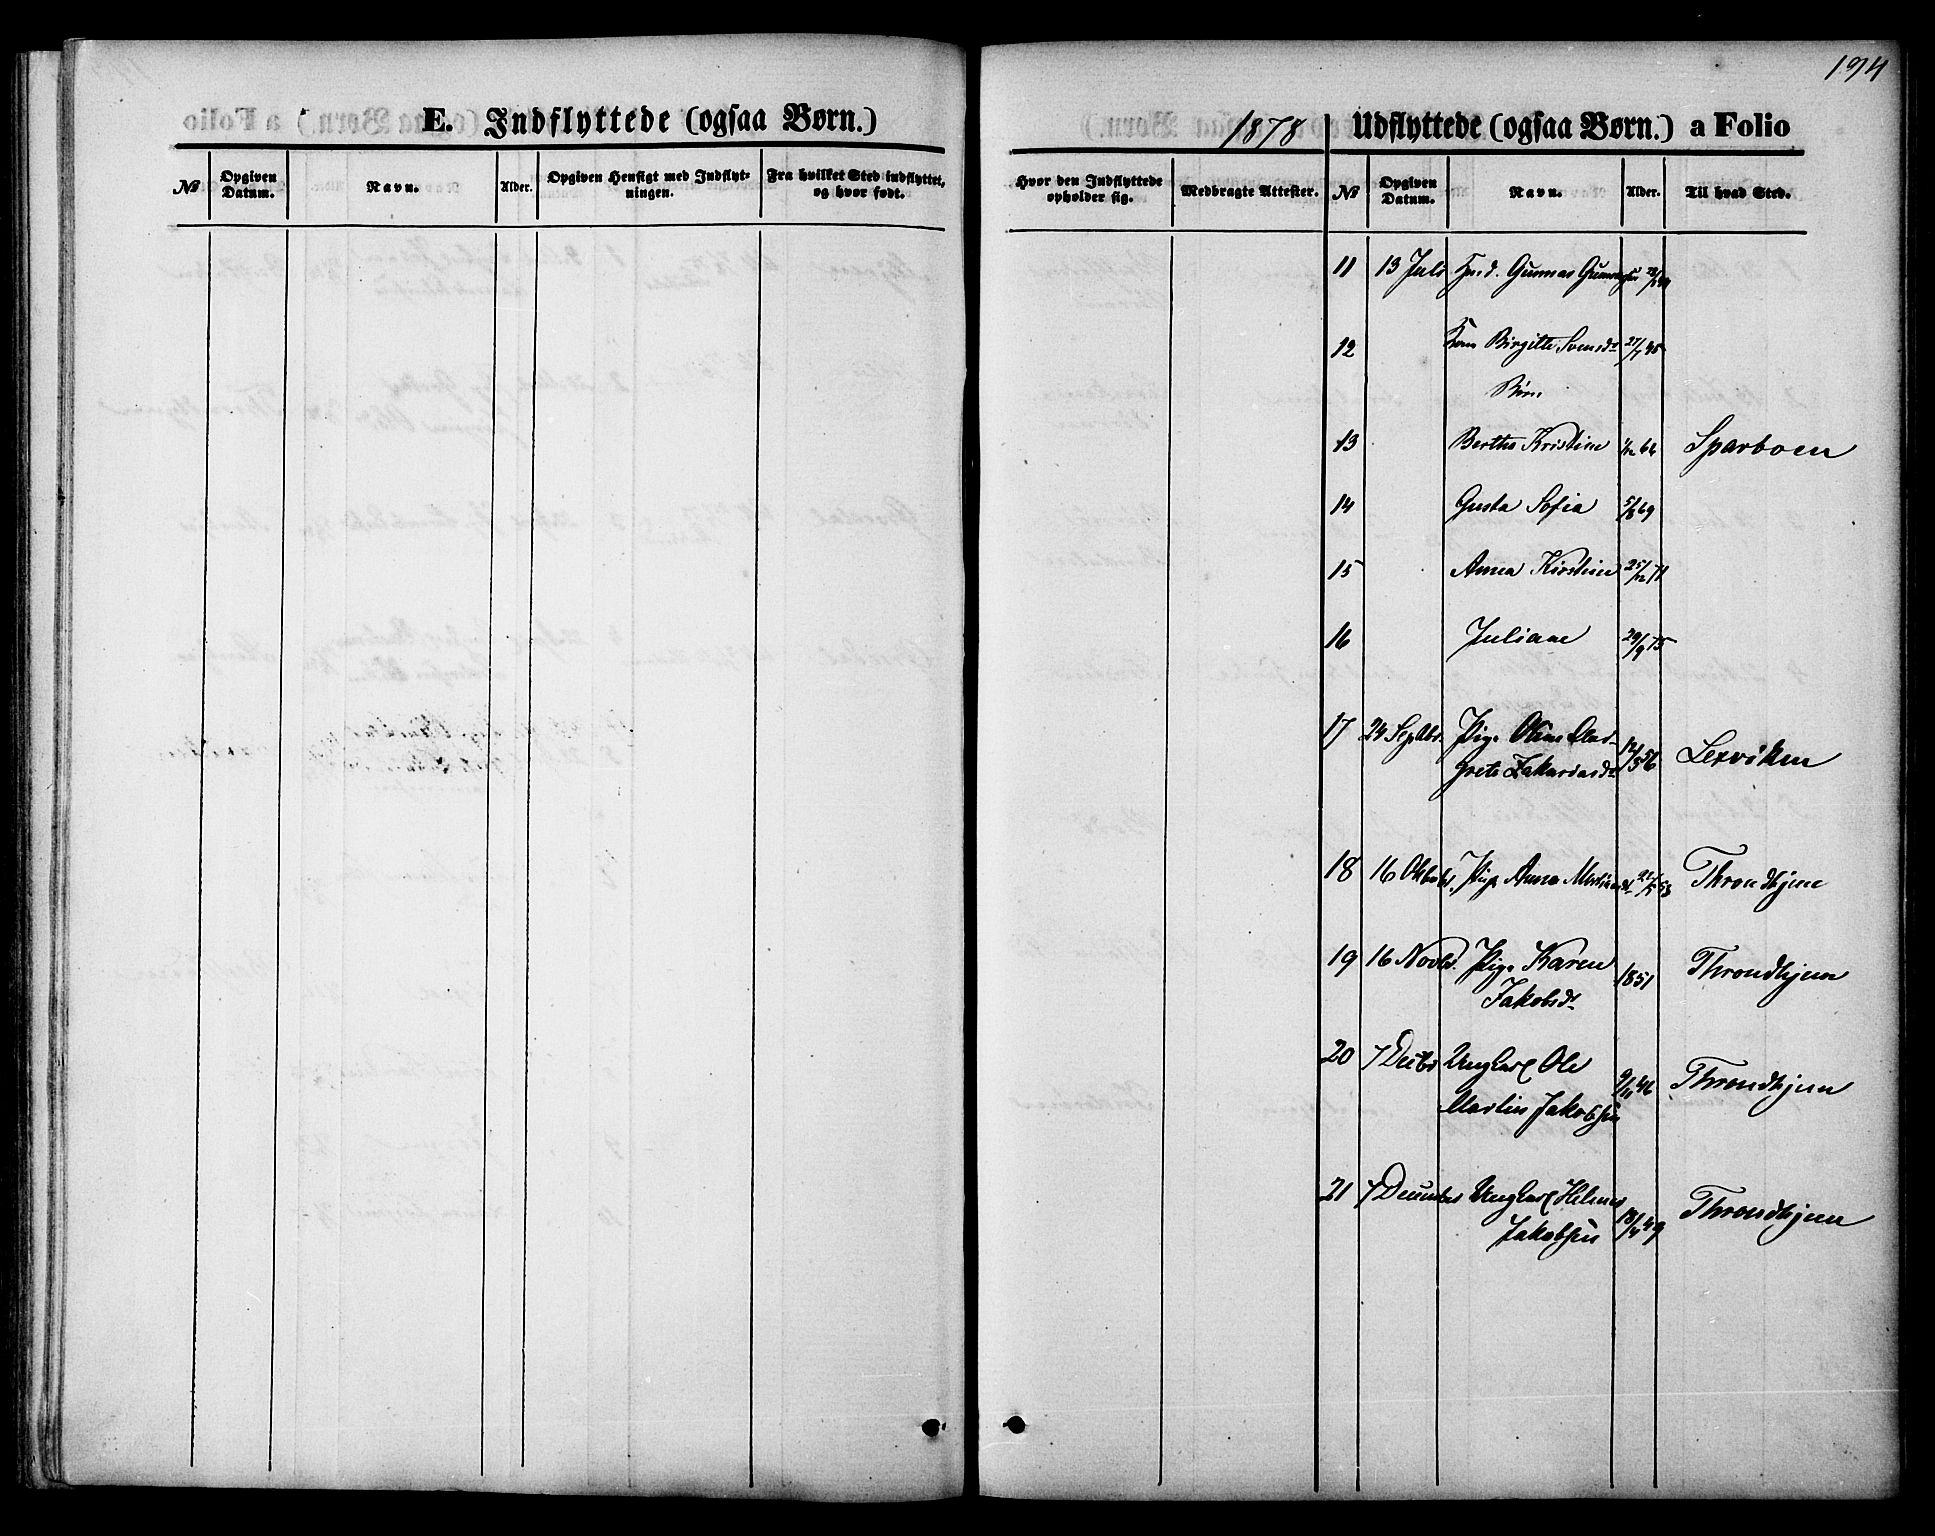 194
E. Indflyttede (ogsaa Børn.)
№ Opgiven Datum. Navn. Alder. Opgiven Hensigt med Indflytningen. Fra hvilket Sted indflyttet, og hvor født.
1878 Udflyttede (ogsaa Børn.) a Folio
Hvor den Indflyttede opholder sig. Medbragte Attester. № Opgiven Datum. Navn. Alder. Til hvad Sted.
11 13 Juli Gunnar
12 Kone Birgitte Svensdr 27/7 45
Børn
13 Bertha Kristine Sparboen
14 Gusta Sofia 5/8 69
15 Anna Kirstine 25/12 71
16 Juliane 29/9 75
17 24 Septbr. Pige Oline
Grete Zakariasdr 12/3 56 Lexviken
18 16 Oktobr. Pige Anna Throndhjem
19 16 Novbr. Pige Karen
Jakobsdr 1851 Throndhjem
20 7 Decbr Ungkarl Ole
Martin Jakobsen 9/11 46 Throndhjem
21 7 Decembr Ungkarl Helmer
Jakobsen 18/4 49 Throndhjem